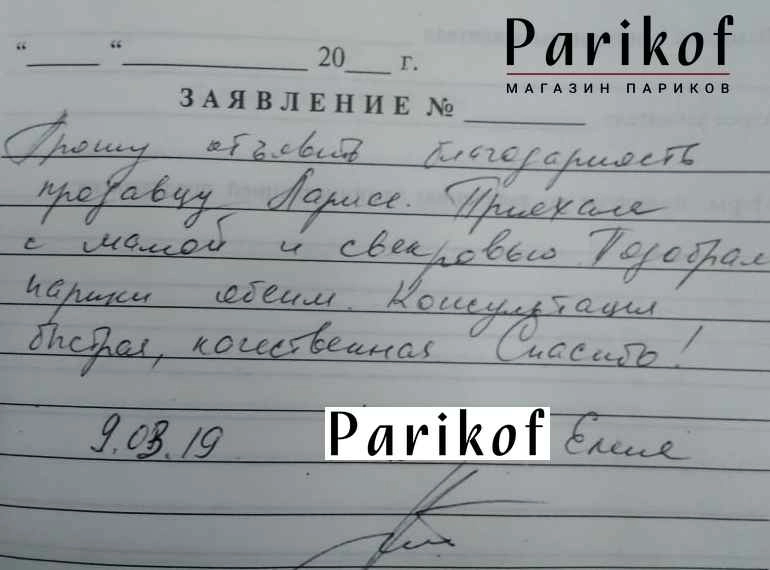 Parikof
МАГАЗИН ПАРИКОВ
“_____ “_____________ 20___ г.
ЗАЯВЛЕНИЕ № ________
Прошу отъявить благодарность
продавцу Ларисе. Приехали
с мамой и свекровью. Подобрали
парики обеим. Консультация
быстрая, качественная Спасибо!
9.03.19 Parikof Елена